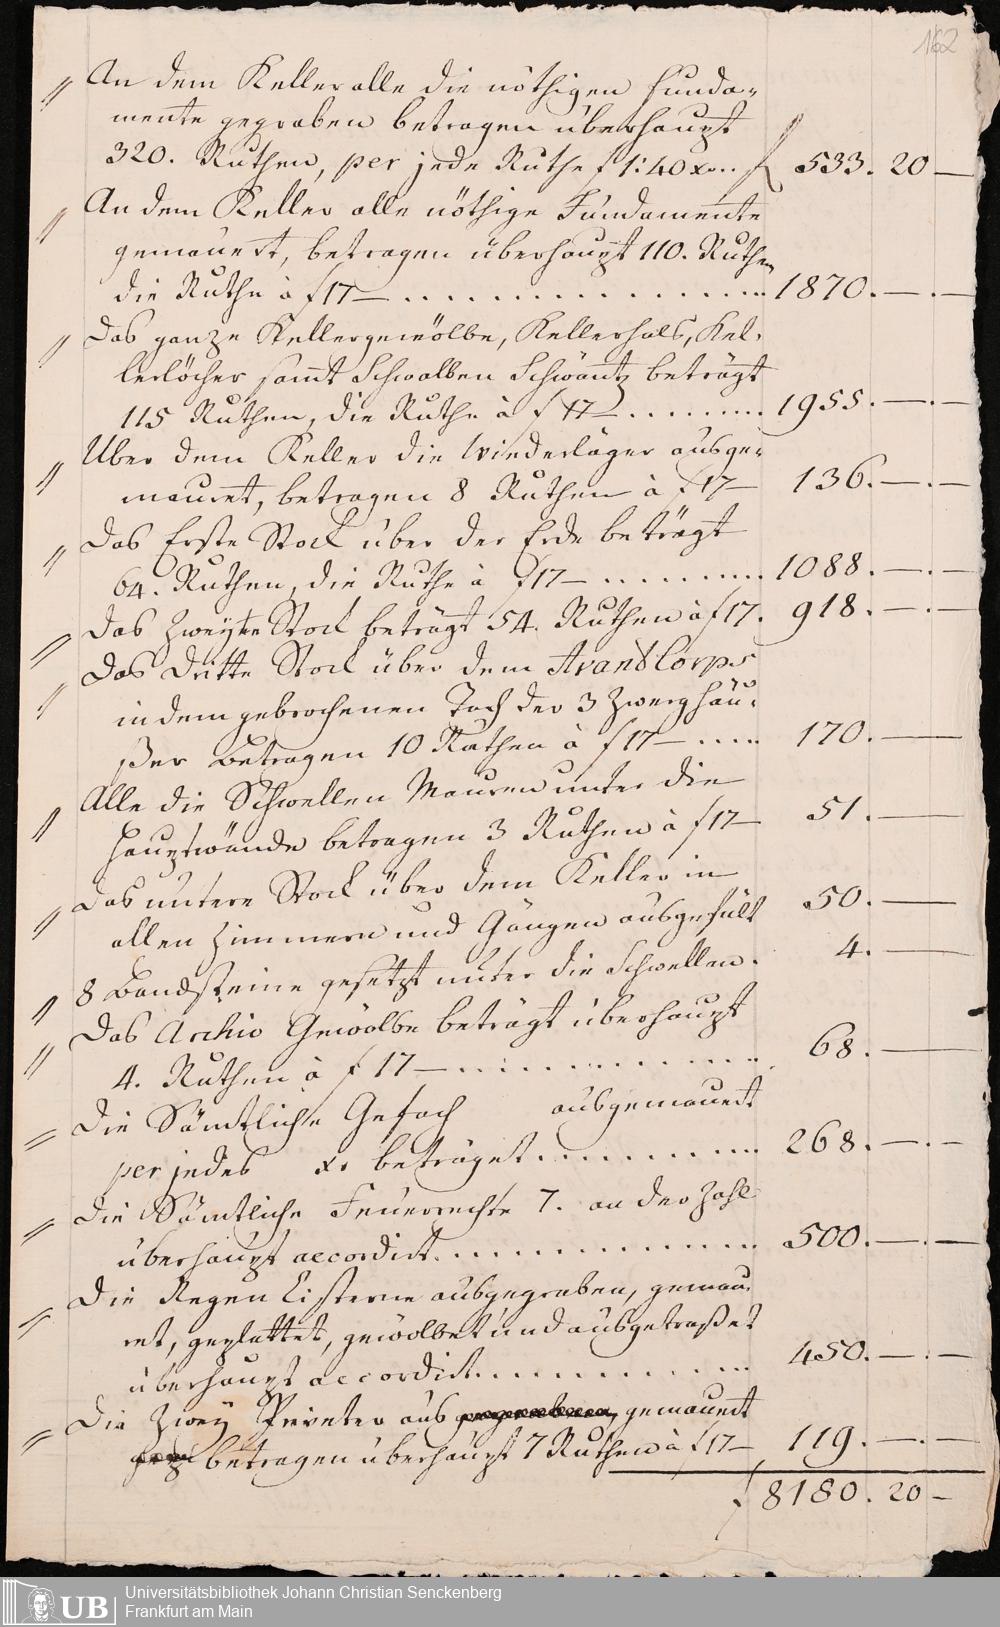 162
" An dem Keller alle die nöthigen Funda-
mente gegraben betragen überhaupt
320. Ruthen, per jede Ruthe f 1:40 xr... f 533. 20 —
" An dem Keller alle nöthige Fundamente
gemauert, betragen überhaupt 110. Ruthen
die Ruthe à f 17 — ................ 1870. — . —
" Das ganze Kellergewölbe, Kellerhals, Kel-
lerlöcher samt Schwalben Schwäntz beträgt
115 Ruthen, die Ruthe à f 17 — ......... 1955. — . —
" Über dem Keller die Wiederläger ausge-
mauret, betragen 8 Ruthen à f 17 — 136. — . —
" Das Erste Stock über der Erde beträgt
64. Ruthen, die Ruthe à f 17 — .......... 1088. — . —
" Das Zweyte Stock beträgt 54. Ruthen à f 17. 918. — . —
" Das dritte Stock über dem Avant Corps
in dem gebrochenen Tach der 3 Zwerghäu-
ßer betragen 10 Ruthen à f 17 — ..... 170. —
" Alle die Schwellen Mauren unter die
Hauptwände betragen 3 Ruthen à f 17 — 51. —
" Das untere Stock über dem Keller in
allen Zimmern und Gängen ausgefült 50. —
" 8 Bandsteine gesetzt unter die Schwellen. 4. —
" Das Archiv Gewölbe beträgt überhaupt
4. Ruthen à f 17 — ............. 68. —
" Die Sämtliche Gefach ausgemauert
per jedes xr beträget ............ 268. — . —
" Die Sämtliche Feuerrechte 7. an der Zahl
überhaupt accordirt ................ 500. — . —
" Die Regen Cisterne ausgegraben, gemau-
ret, geplattet, gewölbet und ausgetraßet
überhaupt accordirt .............. 450. — . —
" Die Zwey Priveter aus gemauert
betragen überhaupt 7 Ruthen à f 17 — 119. — . —
f 8180. 20 —
UB Universitätsbibliothek Johann Christian Senckenberg
Frankfurt am Main